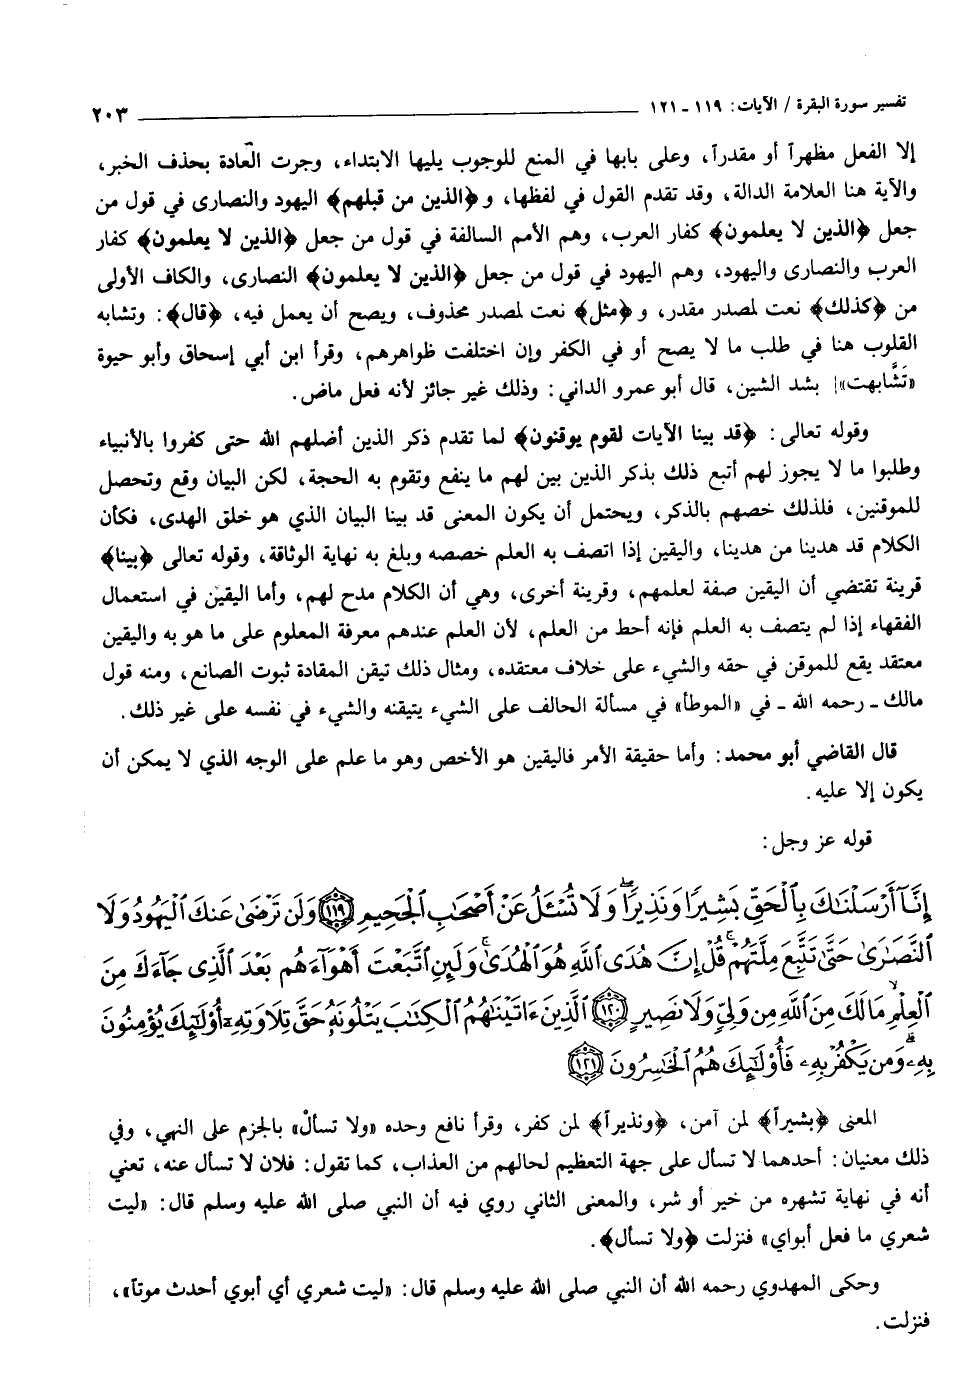 تفسير سورة البقرة / الآيات: ١١٩ - ١٢١ ٢٠٣
إلا الفعل مظهراً أو مقدراً، وعلى بابها في المنع للوجوب يليها الابتداء، وجرت العادة بحذف الخبر،
والآية هنا العلامة الدالة، وقد تقدم القول في لفظها، و ﴿الذين من قبلهم﴾ اليهود والنصارى في قول من
جعل ﴿الذين لا يعلمون﴾ كفار العرب، وهم الأمم السالفة في قول من جعل ﴿الذين لا يعلمون﴾ كفار
العرب والنصارى واليهود، وهم اليهود في قول من جعل ﴿الذين لا يعلمون﴾ النصارى، والكاف الأولى
من ﴿كذلك﴾ نعت لمصدر مقدر، و ﴿مثل﴾ نعت لمصدر محذوف، ويصح أن يعمل فيه، ﴿قال﴾: وتشابه
القلوب هنا في طلب ما لا يصح أو في الكفر وإن اختلفت ظواهرهم، وقرأ ابن أبي إسحاق وأبو حيوة
«تَشَّابهت» بشد الشين، قال أبو عمرو الداني: وذلك غير جائز لأنه فعل ماض.
وقوله تعالى: ﴿قد بينا الآيات لقوم يوقنون﴾ لما تقدم ذكر الذين أضلهم الله حتى كفروا بالأنبياء
وطلبوا ما لا يجوز لهم أتبع ذلك بذكر الذين بين لهم ما ينفع وتقوم به الحجة، لكن البيان وقع وتحصل
للموقنين، فلذلك خصهم بالذكر، ويحتمل أن يكون المعنى قد بينا البيان الذي هو خلق الهدى، فكأن
الكلام قد هدينا من هدينا، واليقين إذا اتصف به العلم خصصه وبلغ به نهاية الوثاقة، وقوله تعالى ﴿بينا﴾
قرينة تقتضي أن اليقين صفة لعلمهم، وقرينة أخرى، وهي أن الكلام مدح لهم، وأما اليقين في استعمال
الفقهاء إذا لم يتصف به العلم فإنه أحط من العلم، لأن العلم عندهم معرفة المعلوم على ما هو به واليقين
معتقد يقع للموقن في حقه والشيء على خلاف معتقده، ومثال ذلك تيقن المقادة ثبوت الصانع، ومنه قول
مالك ـ رحمه الله ـ في «الموطأ» في مسألة الحالف على الشيء يتيقنه والشيء في نفسه على غير ذلك.
قال القاضي أبو محمد: وأما حقيقة الأمر فاليقين هو الأخص وهو ما علم على الوجه الذي لا يمكن أن
يكون إلا عليه.
قوله عز وجل:
إِنَّآ أَرْسَلْنَٰكَ بِٱلْحَقِّ بَشِيرًا وَنَذِيرًاۖ وَلَا تُسْـَٔلُ عَنْ أَصْحَٰبِ ٱلْجَحِيمِ ﴿١١٩﴾ وَلَن تَرْضَىٰ عَنكَ ٱلْيَهُودُ وَلَا
ٱلنَّصَٰرَىٰ حَتَّىٰ تَتَّبِعَ مِلَّتَهُمْۗ قُلْ إِنَّ هُدَى ٱللَّهِ هُوَ ٱلْهُدَىٰۗ وَلَئِنِ ٱتَّبَعْتَ أَهْوَآءَهُم بَعْدَ ٱلَّذِى جَآءَكَ مِنَ
ٱلْعِلْمِۙ مَا لَكَ مِنَ ٱللَّهِ مِن وَلِىٍّ وَلَا نَصِيرٍ ﴿١٢٠﴾ ٱلَّذِينَ ءَاتَيْنَٰهُمُ ٱلْكِتَٰبَ يَتْلُونَهُۥ حَقَّ تِلَاوَتِهِۦٓ أُو۟لَٰٓئِكَ يُؤْمِنُونَ
بِهِۦۗ وَمَن يَكْفُرْ بِهِۦ فَأُو۟لَٰٓئِكَ هُمُ ٱلْخَٰسِرُونَ ﴿١٢١﴾
المعنى ﴿بشيراً﴾ لمن آمن، ﴿ونذيراً﴾ لمن كفر، وقرأ نافع وحده «ولا تسألْ» بالجزم على النهي، وفي
ذلك معنيان: أحدهما لا تسأل على جهة التعظيم لحالهم من العذاب، كما تقول: فلان لا تسأل عنه، تعني
أنه في نهاية تشهره من خير أو شر، والمعنى الثاني روي فيه أن النبي صلى الله عليه وسلم قال: «ليت
شعري ما فعل أبواي» فنزلت ﴿ولا تسأل﴾.
وحكى المهدوي رحمه الله أن النبي صلى الله عليه وسلم قال: «ليت شعري أي أبوي أحدث موتاً»،
فنزلت.